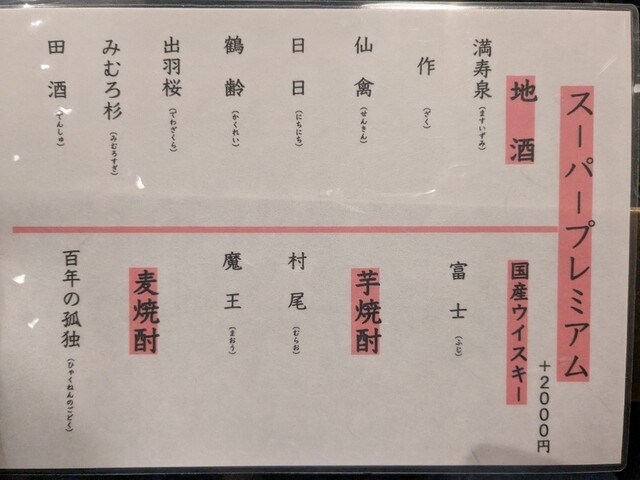 スーパープレミアム
+2000円
地酒
満寿泉(ますいずみ)
作(ざく)
仙禽(せんきん)
日日(にちにち)
鶴齢(かくれい)
出羽桜(でわざくら)
みむろ杉(みむろすぎ)
田酒(でんしゅ)
国産ウイスキー
富士(ふじ)
芋焼酎
村尾(むらお)
魔王(まおう)
麦焼酎
百年の孤独(ひゃくねんのこどく)